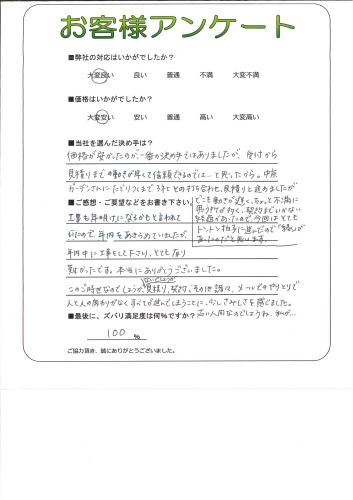 お客様アンケート
■弊社の対応はいかがでしたか？
大変良い 良い 普通 不満 大変不満
■価格はいかがでしたか？
大変安い 安い 普通 高い 大変高い
■当社を選んだ決め手は？
価格が安かったのが、一番の決め手ではありましたが、受付から
見積りまでの動きが早くて信頼できるのでは…と思ったから。
ガーデンさんにたどりつくまで 打ち合わせ、見積りと進めましたが
■ご感想・ご要望などをお書き下さい。
どこも動きが遅く、ちょっと不満に
トントン拍子に進んだので
工事も年明けになるかもと言われて
いたので、年内をあきらめていましたが、
年内中に工事をして下さり、とても有り
難かったです。本当にありがとうございました。
このご時世なのでしょうが、見積り、契約、その他諸々、メールでのやりとりで
人と人の関わりがなくすべてが進んでしまうことに、少しさみしさを感じました。
古い人間なのでしょうね、私が…
■最後に、ズバリ満足度は何％ですか？
100 %
ご協力頂き、誠にありがとうございました。